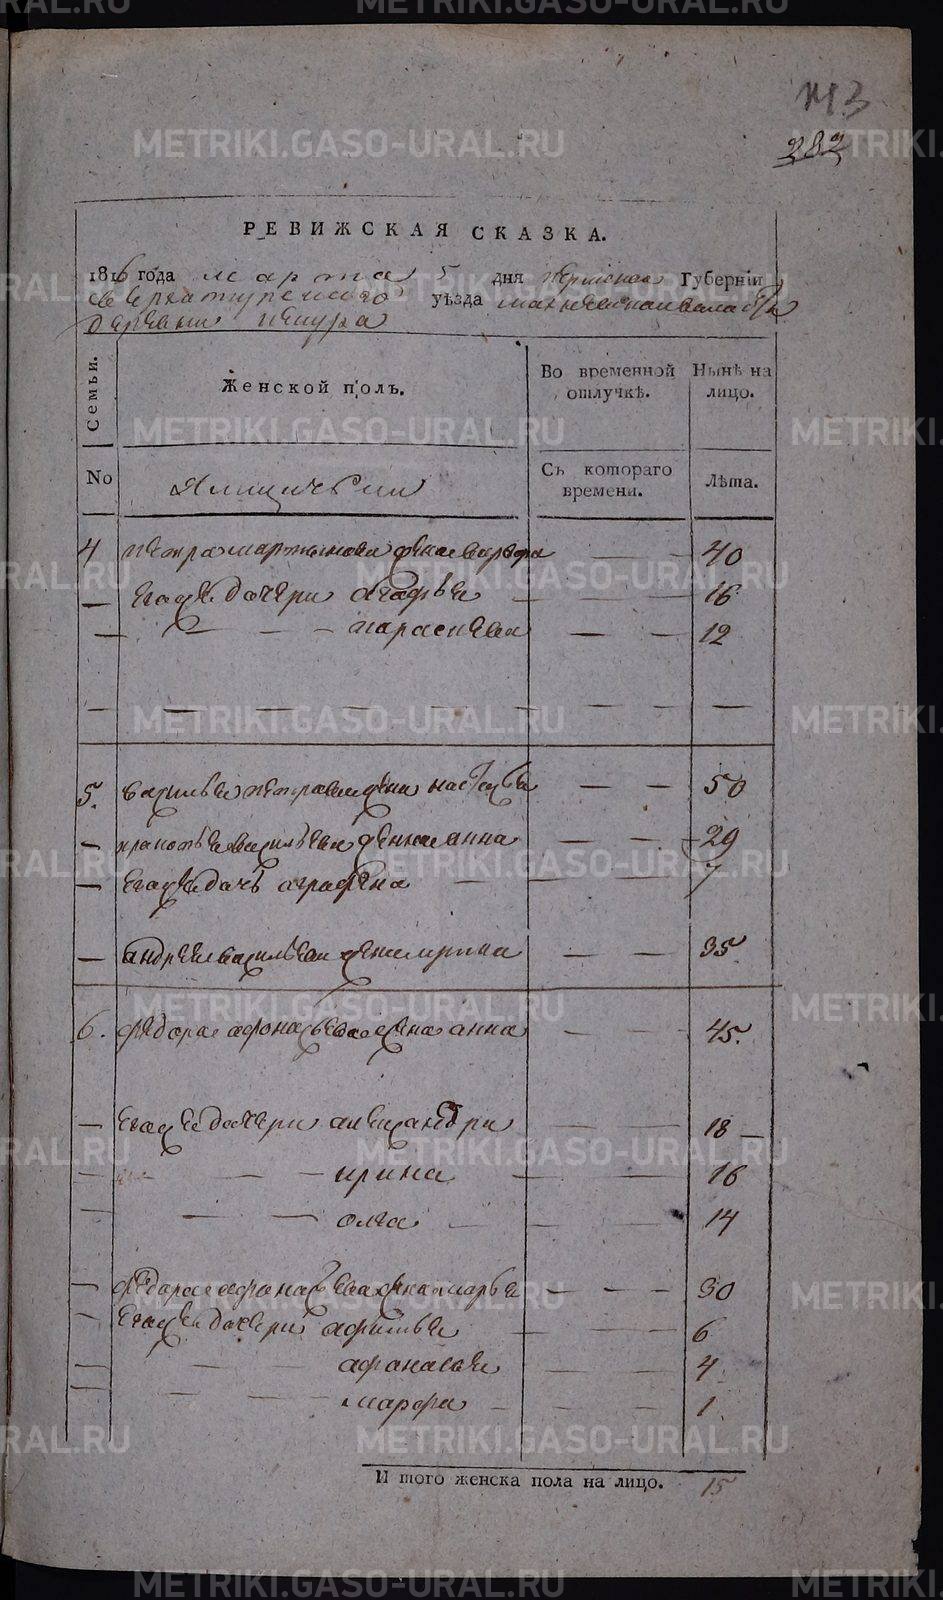 143
282
РЕВИЖСКАЯ СКАЗКА.
1816 года марта 5 дня пермской Губерніи
верхотурского уѣзда
деревни
Семьи.
Женской полъ.
Во временной отлучкѣ.
Нынѣ на лицо.
No
Ямщичьи
Съ котораго времени.
Лѣта.
4 петра мартынова жена варвара — — 40
— егожъ дочери агафья — — 16
— — — — парасковья — — 12
— — — — — — — — —
5. василья петрова жена настасья — — 50
— васильева жена анна — — 29
— егожъ дочь аграфена — — 7
— андрея васильева жена ирина — — 35
6. федора афонасьева жена анна — — 45.
— егожъ дочери александра — — 18
— — — ирина — — 16
— — — олга — — 14
— федора афонасьева жена марья — — 30
— егожъ дочери афимья — — 6
— — — афанасья — — 4
— — — марфа — — 1
И того женска пола на лицо. 15
METRIKI.GASO-URAL.RU